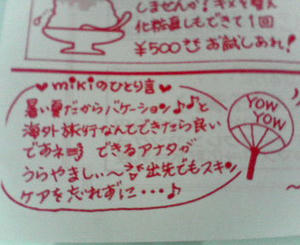 しませんか！キメを整え
化粧直しもできて1回
¥500
お試しあれ！
♥mikiのひとり言♥
暑い夏だからバケーション♪♪と
海外旅行なんてできたら良い
ですネ
できるアナタが
うらやましぃ〜
出先でもスキン
ケアを忘れずに・・・♪
YOW
YOW